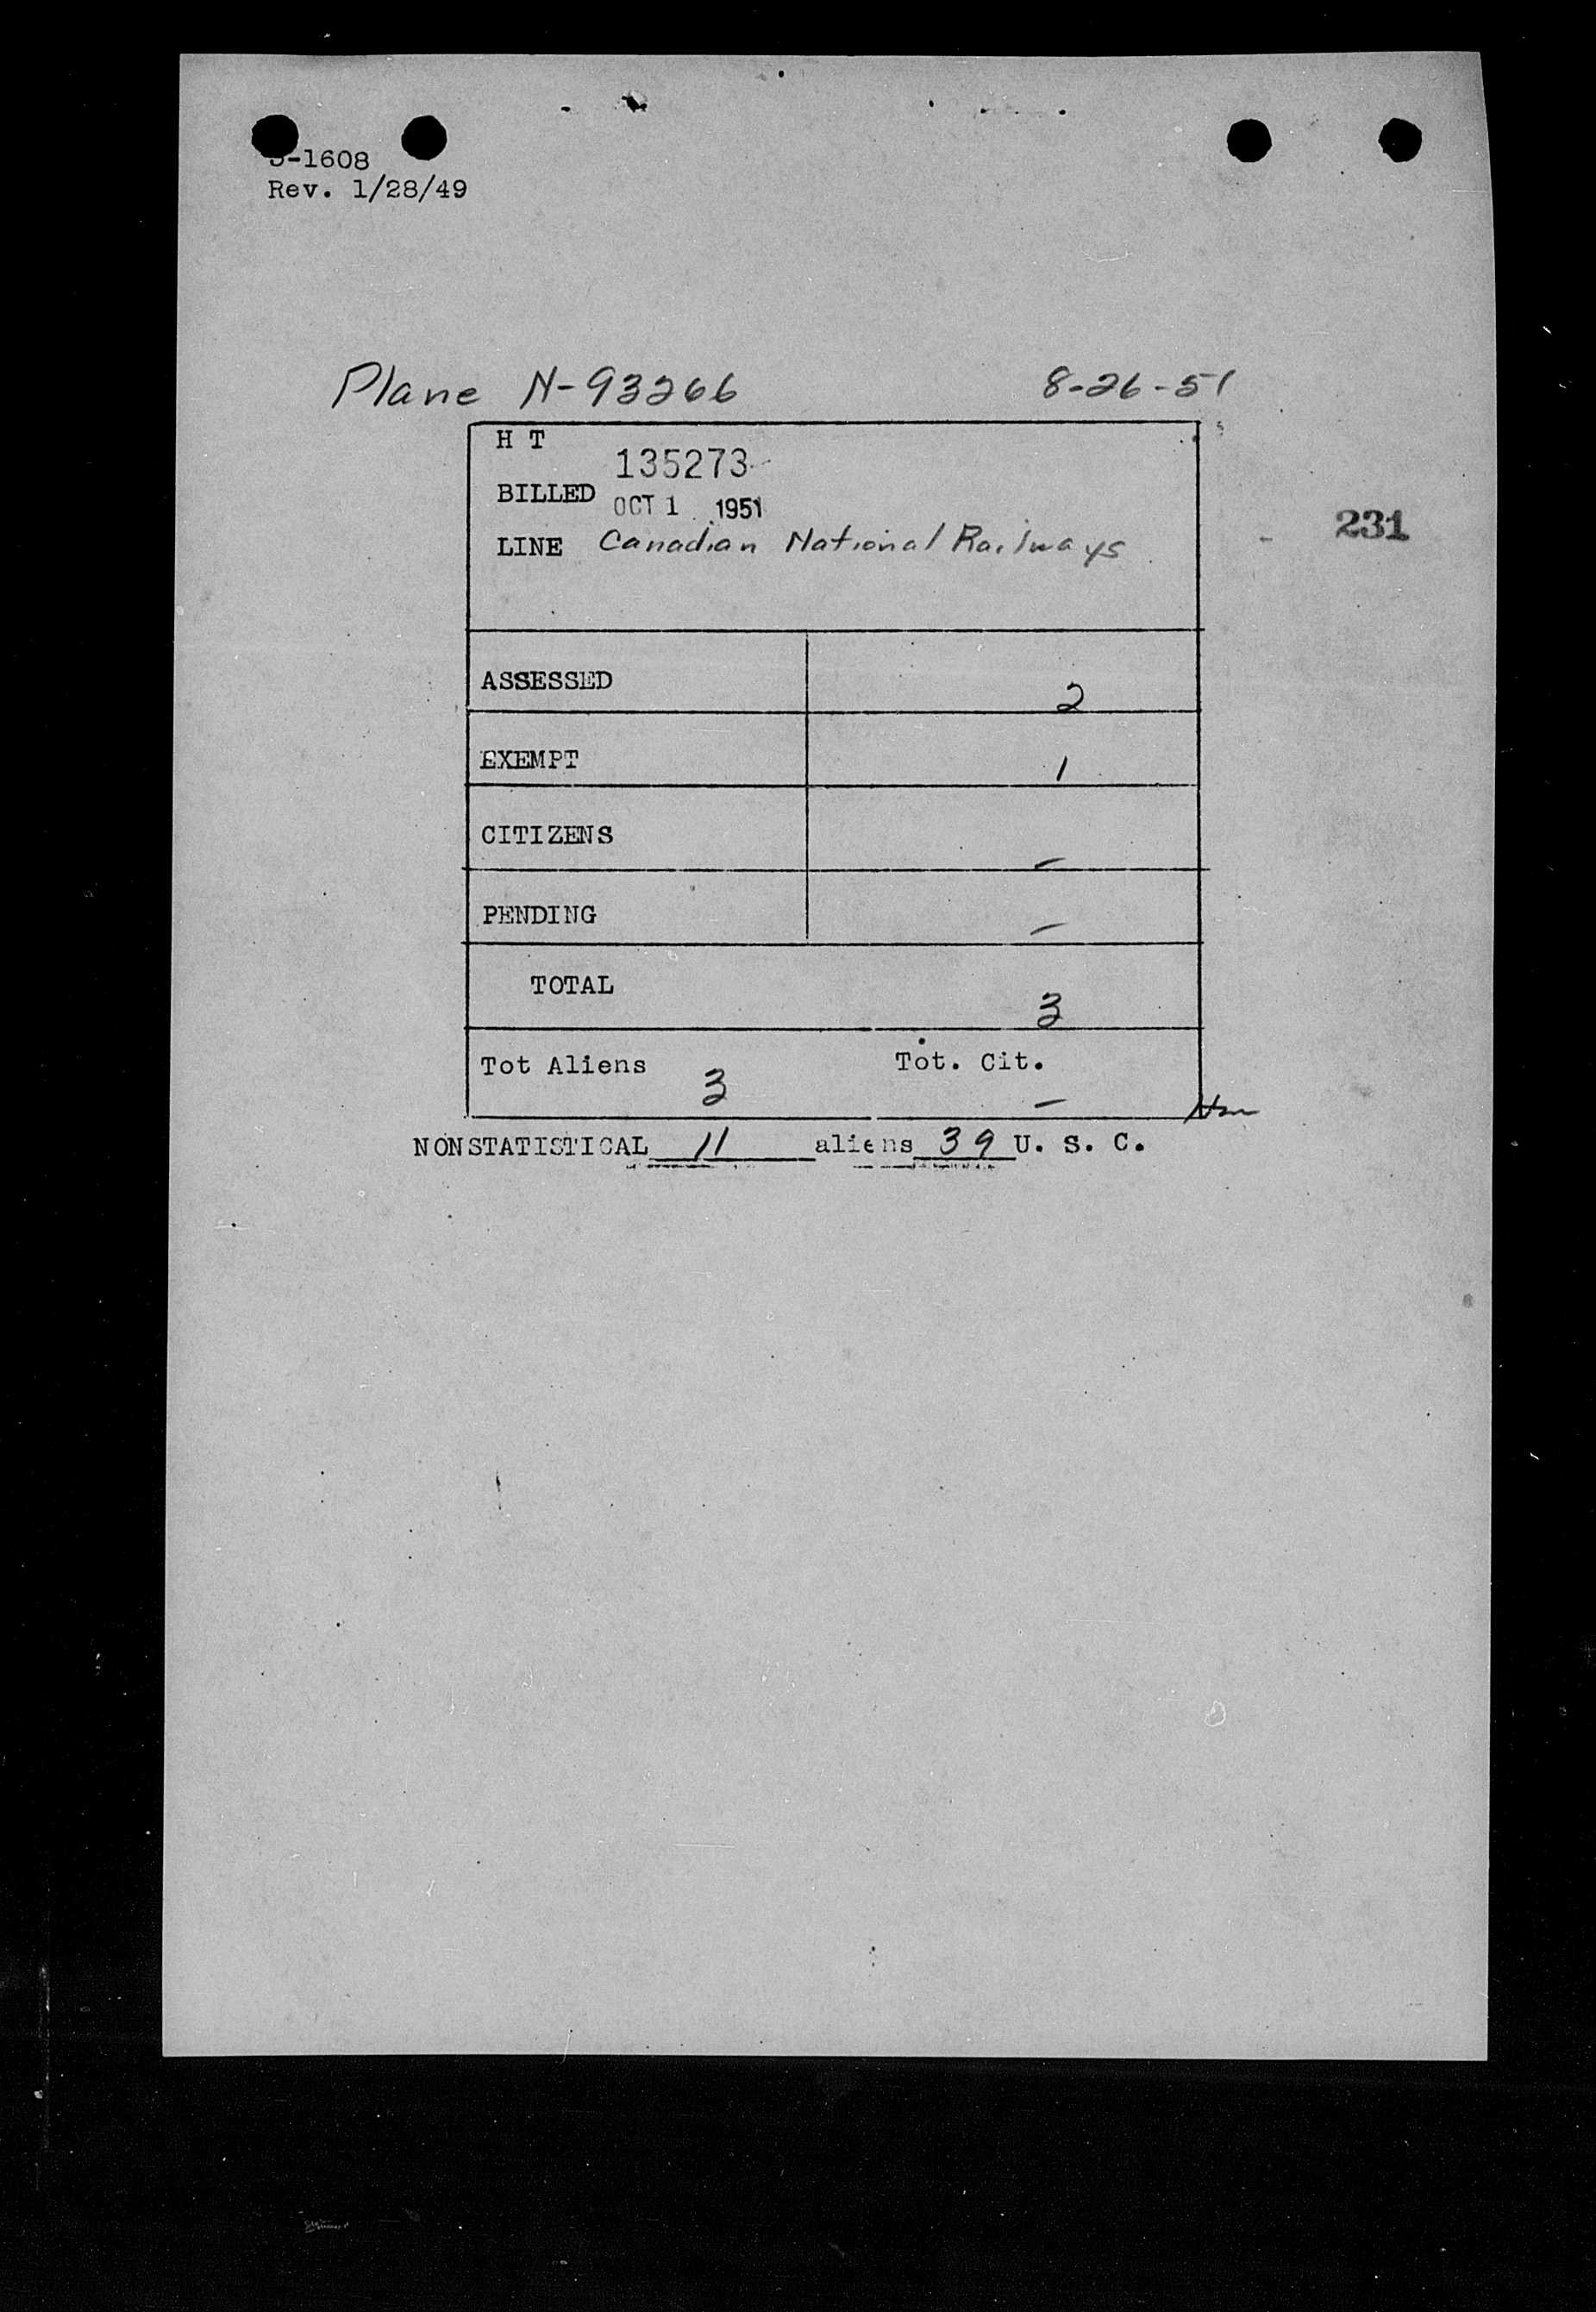 -1608
Rev. 1/28/49
Plane N-93266 8-26-51
H T
135273
BILLED OCT 1 1951
LINE Canadian National Railways
231
ASSESSED 2
EXEMPT 1
CITIZENS –
PENDING –
TOTAL 3
Tot Aliens 3 Tot. Cit. –
NONSTATISTICAL 11 aliens 39 U. S. C.